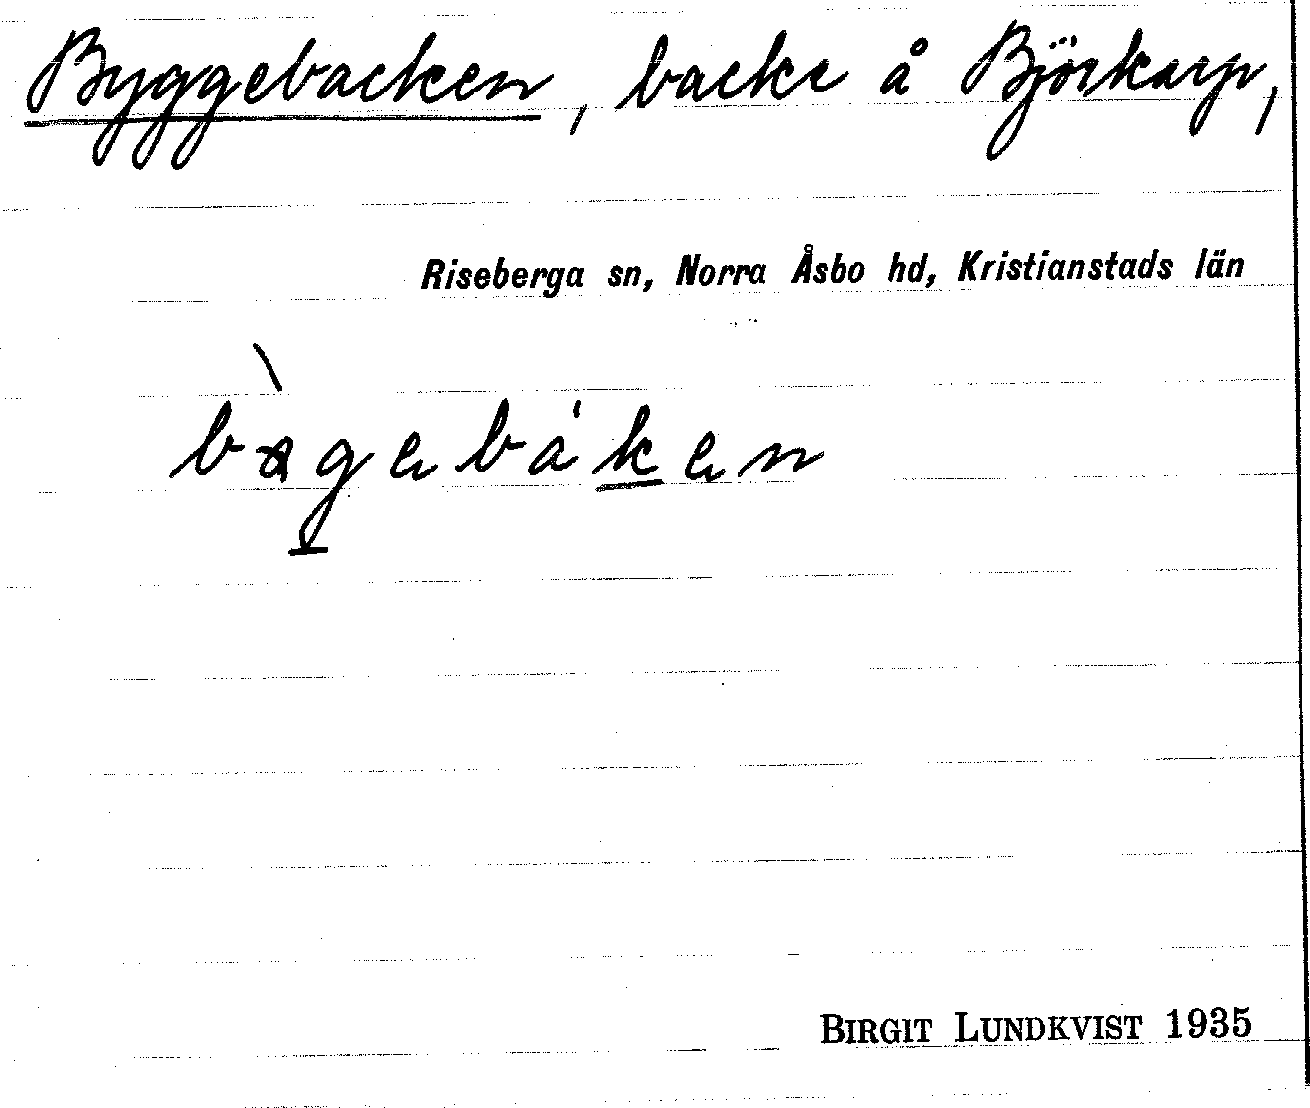 Byggebacken, backe å Björkarp,
Riseberga sn, Norra Åsbo hd, Kristianstads län
BIRGIT LUNDKVIST 1935